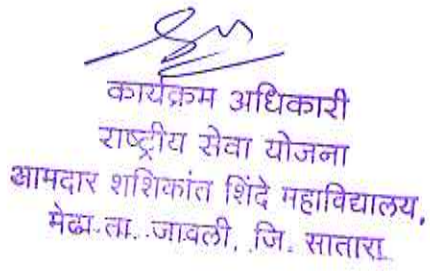 कार्यक्रम अधिकारी
राष्ट्रीय सेवा योजना
आमदार शशिकांत शिंदे महाविद्यालय,
मेढा. ता. जावली, जि. सातारा